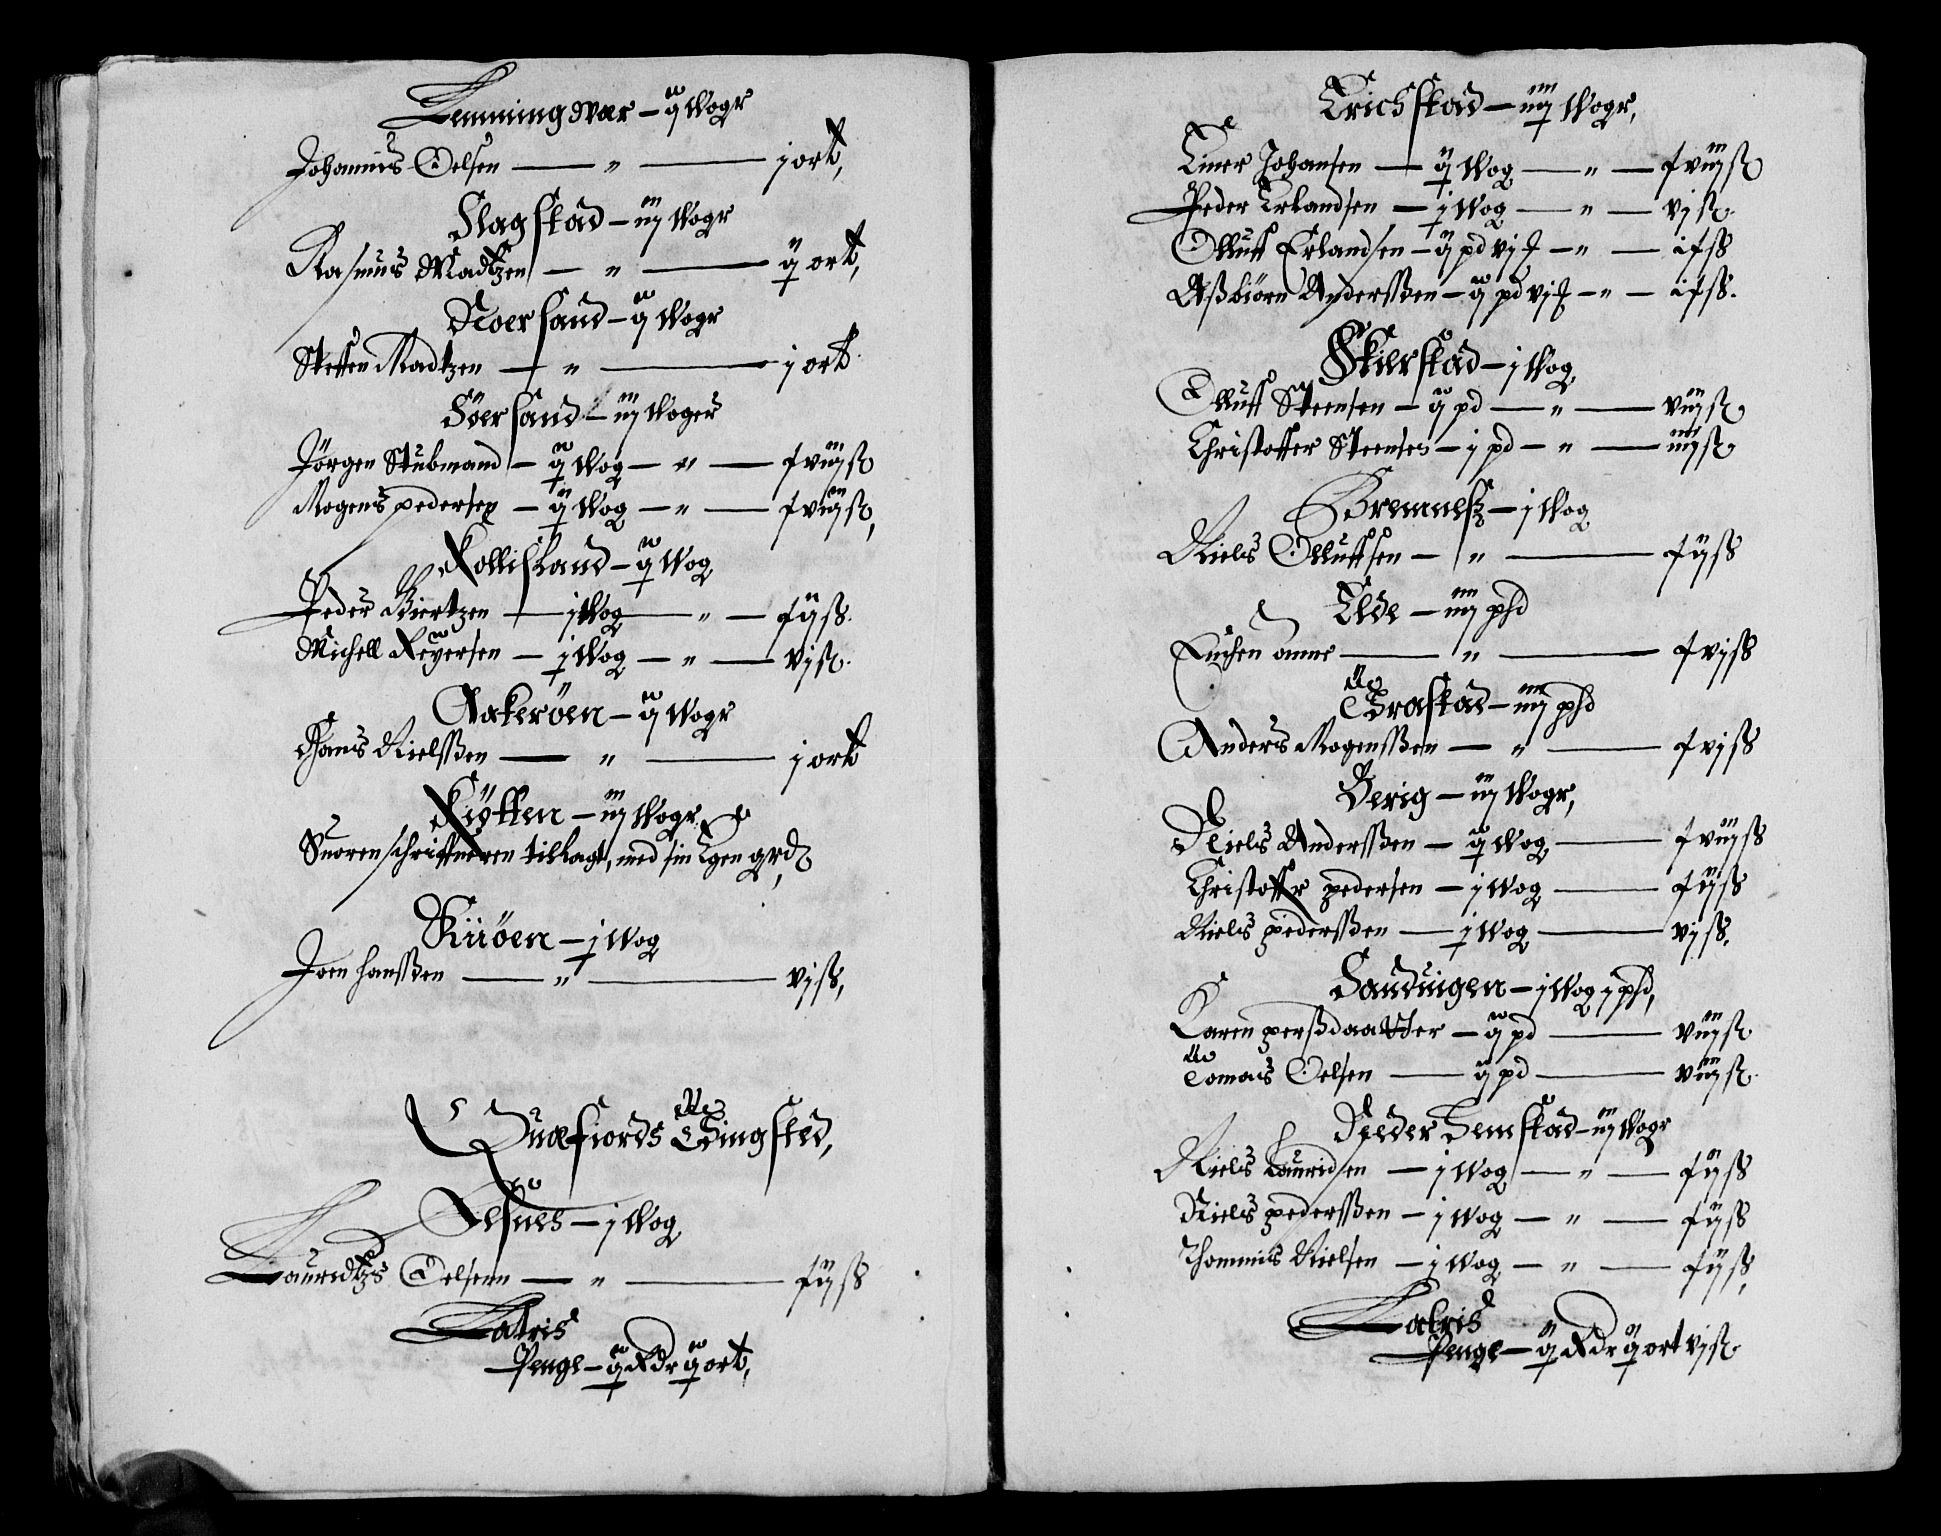 Lemmingsvær – ij Wogr
Johannes Oelsen — " — j ort,
Slagstad – iij Wogr
Rasmus Madtzen — " — ij ort,
Noersand – ij Wogr
Steffen Madtzen — " — j ort
Söersand – iij Woger
Jörgen Stubmand – ij Wog – " – f viij ß
Mogens pedersen – ij Wog – " – f viij ß,
Kollissand – ij Wog
Peder Biertzen – j Wog – " – f ij ß.
Michell Reyersen – j Wog – " – vj ß.
Aakeröen – ij Wogr
Hans Nielssen — " — j ort
Kiötten – iij Wogr
Suorenschriffueren tillagt, med sin Egen grd
Kiiöen – j Wog
Joen hanssen — " — vj ß,
Quæfiords Tingsted,
Gesnes – j Wog
Lauridtzs Oelsenn — " — f ij ß
Latris
Penge – ij Rdr ij ort,
Erichstad – iiij Wogr,
Einer Johansen – ij Wog – " – f viij ß
Peder Erlandsen – j Wog – " – vj ß.
Olluff Erlandsen – ij pd vj – " – i f ß
Aßbiörn Anderssen – ij pd vj – " – i f ß.
Skierstad – j Wog
Olluff Steensen – ij pd – " – viij ß,
Christoffer Steensen – j pd – " – iiij ß,
Bremnes – j Wog
Niels Olluffsen – " — f ij ß
Elde – iiij phd
Encken anne — " — f vj ß
Trastad – iiij phd
Anders Mogenssen — " — f vj ß
Berig – iij Wogr,
Niels Anderssen – ij Wog — f viij ß
Christoffer pedersen – j Wog — f ij ß
Niels pederssen – j Wog — vj ß,
Sanduigen – j Wog j phd,
Karen perßdaatter – ij pd — viij ß
Tomas Oelsen — ij pd — viij ß.
Neder Semstad – iij Wogr
Niels Lauridsen – j Wog – " – f ij ß
Niels pederssen – j Wog – " – f ij ß
Thommis Nielsen – j Wog – " – f ij ß,
Latris
Penge – ij Rdr ij ort vj ß